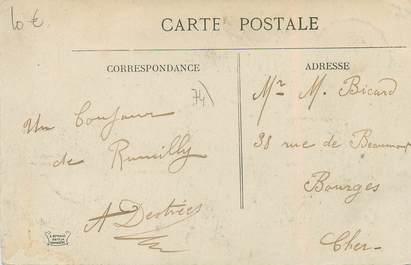 10 €
CARTE POSTALE
CORRESPONDANCE
ADRESSE
74
Un Bonjour
de Rumilly
A Destrées
Mr M. Bicard
38 rue de Beaumont
Bourges
Cher